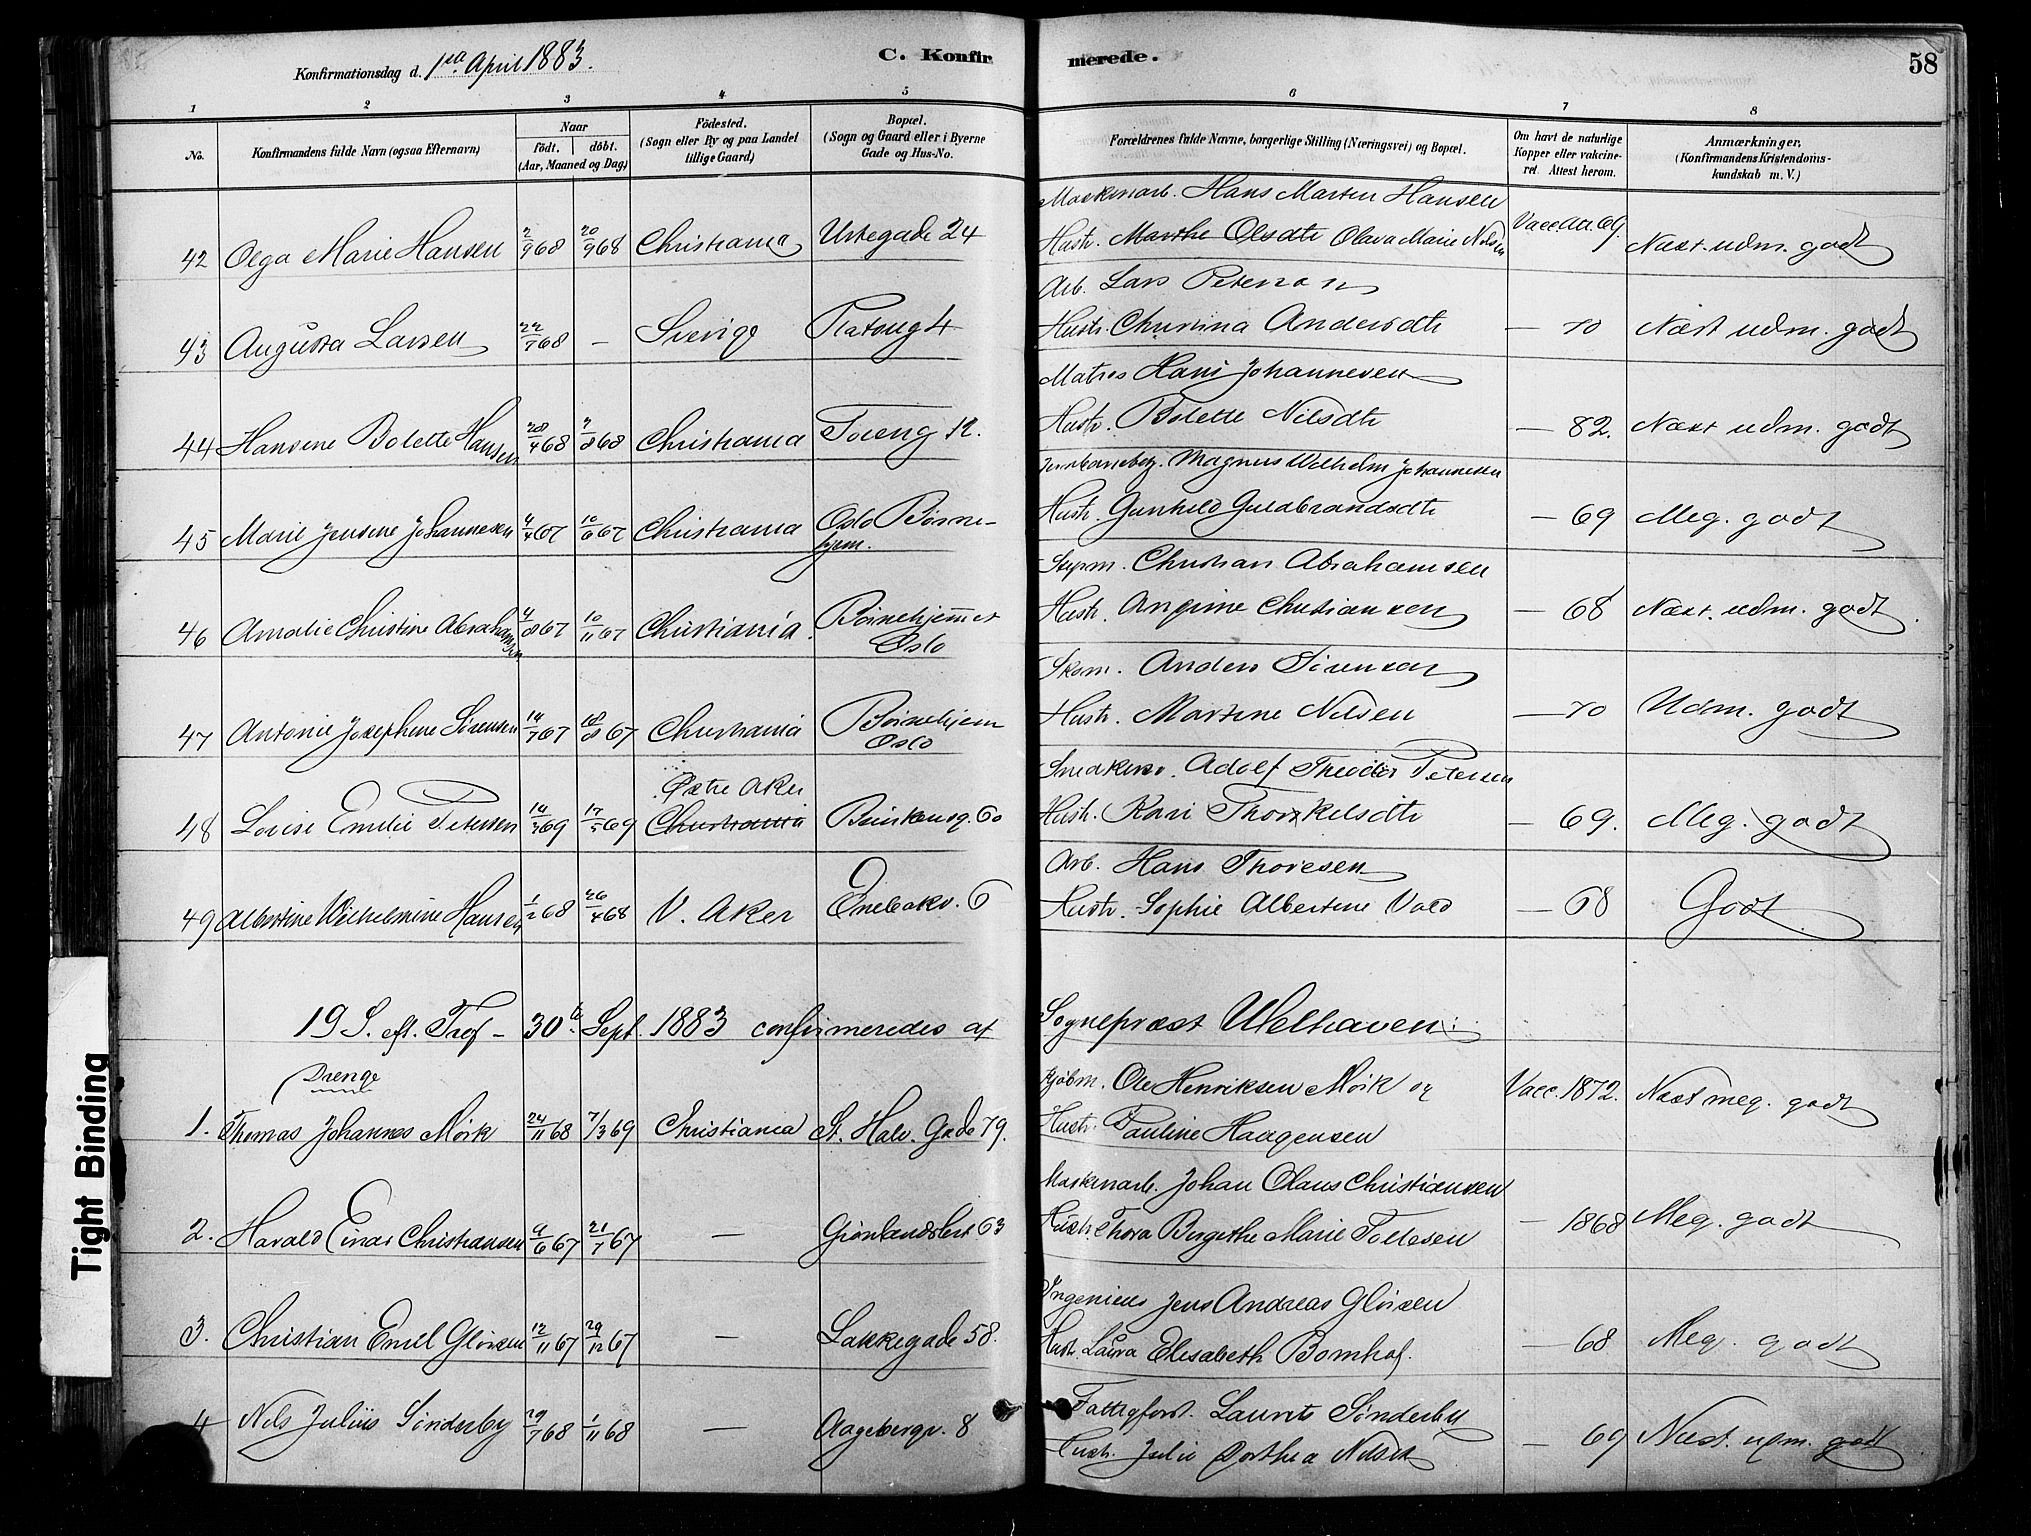 Konfirmationsdag d. 1ste April 1883.
C. Konfirmerede.
58
1 2 3 4 5 6 7 8
No.
Konfirmandens fulde Navn (ogsaa Efternavn)
Naar
födt. döbt.
(Aar, Maaned og Dag)
Födested.
(Sogn eller By og paa Landet
tillige Gaard)
Bopæl.
(Sogn og Gaard eller i Byerne
Gade og Hus-No.
Forældrenes fulde Navne, borgerlige Stilling (Næringsvei) og Bopæl.
Om havt de naturlige
Kopper eller vakcine-
ret. Attest herom.
Anmærkninger.
(Konfirmandens Kristendoms-
kundskab m. V.)
Maskinarb. Hans Martin Hansen
42 Olga Marie Hansen 2/9 68 20/9 68 Christiania Urtegade 24 Hustr. Marthe Olsdtr Olava Marie Nilsen Vacc. 69 Næst. udm. godt
Arb. Lars Peterson
43 Augusta Larsen 22/7 68 — Sverige Hustr. Christina Andersdtr — 70 Næst udm. godt
Matros Hans Johannesen
44 Hansene Bolette Hansen 28/4 68 68 Christiania Toieng 12. Hustr. Bolette Nilsdtr — 82. Næst udm. godt
Magnus Wilhelm Johannesen
45 Marie Jensine Johannesen 4/4 67 10/6 67 Christiania Oslo Børne-
hjem. Hustr. Gunhild Guldbrandsdtr — 69 Meg. godt
Christian Abrahamsen
46 Amalie Christine Abrahamsen 4/8 67 10/11 67 Christiania. Børnehjemmet
Oslo Hustr. Christiansen — 68 Næst. udm. godt
Skom. Anders Sørensen
47 Antonie Josephine Sørensen 14/7 67 18/8 67 Christiania Børnehjem
Oslo Hustr. Martine Nilsen — 70 Udm. godt
Østre Aker
Snedkersv. Adolf Theodor Petersen
48 Lovise Emilie Petersen 14/3 69 17/5 69 Christiania 60 Hustr. Kari Thorkelsdtr — 69. Meg. godt
Arb. Hans Thoresen
49 Albertine Wilhelmine Hansen 1/2 68 26/4 68 V. Aker Enebakv. 6 Hustr. Sophie Albertine Vold — 68 Godt
19 S. eft. Tref — 30te Sept. 1883 confirmeredes af Sognepræst Welhaven:
Drenge
Kjøbm. Ole Henriksen Mørk og
1. Thomas Johannes Mørk 24/11 68 7/3 69 Christiania St. Halv. Gade 79. Hustr. Pauline Haagensen Vacc. 1872. Næst meg. godt
Maskinarb. Johan Olaus Christiansen
2. Harald Einar Christiansen 9/6 67 21/7 67 — Grønlandsleret 63 Hustr. Thora Birgithe Marie Tollesen — 1868 Meg. godt
Ingenieur Jens Andreas Gløisen
3. Christian Emil Gløisen 12/11 67 29/12 67 — Lakkegade 58. Hustr. Laura Elisabeth Bomhof. — 68 Meg. godt
Fattigforst. Laurits Sønderby
4 Nils Julius Sønderby 29/7 68 1/11 68 — Aagebergv. 8 Hustr. Julie Dorthea — 69 Næst. udm. godt
Tight Binding